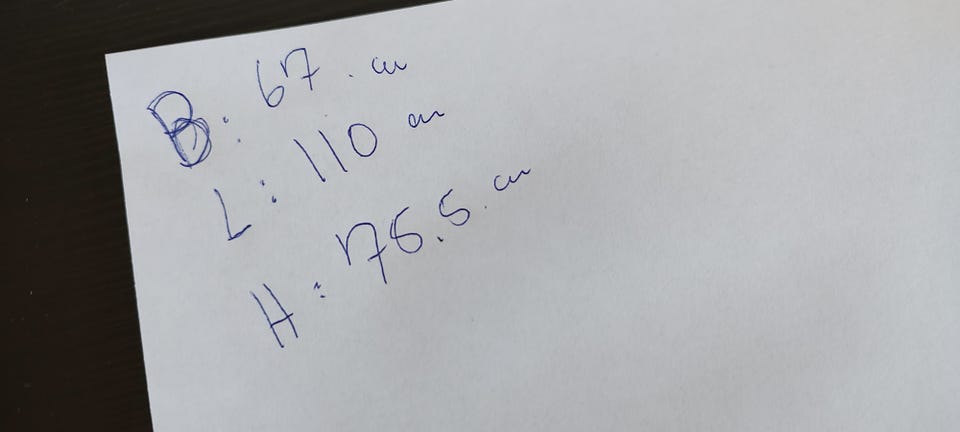 B: 67 cm
L: 110 cm
H: 75.5 cm